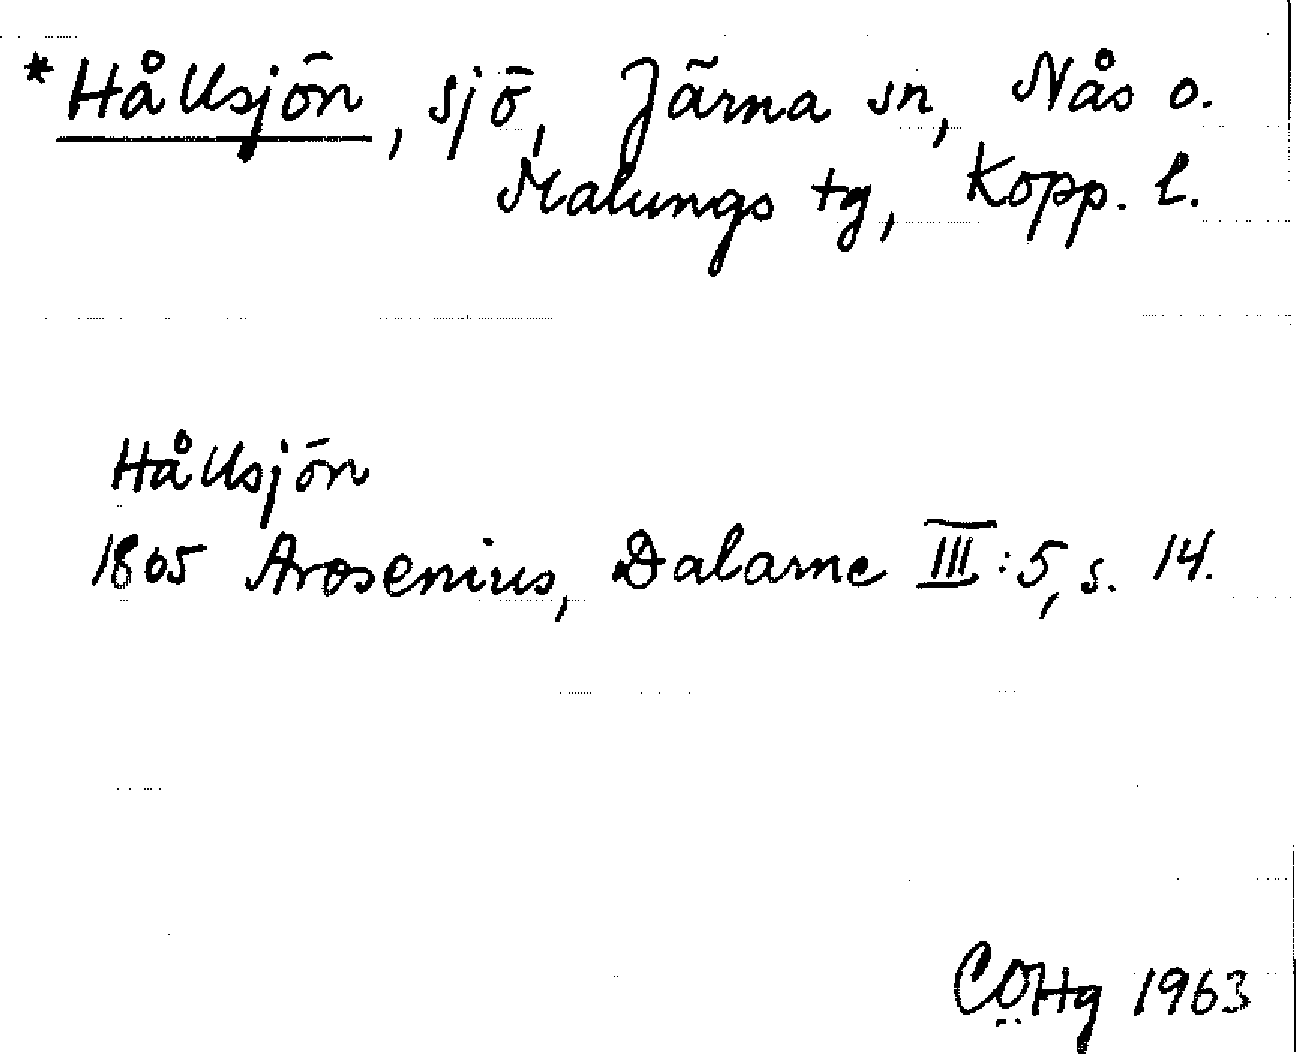 *Hållsjön, sjö, Järna sn, Nås o.
Malungs tg, Kopp. l.
Hållsjön
1865 Arosenius, Dalarne III:5, s. 14.
CÖHg 1963